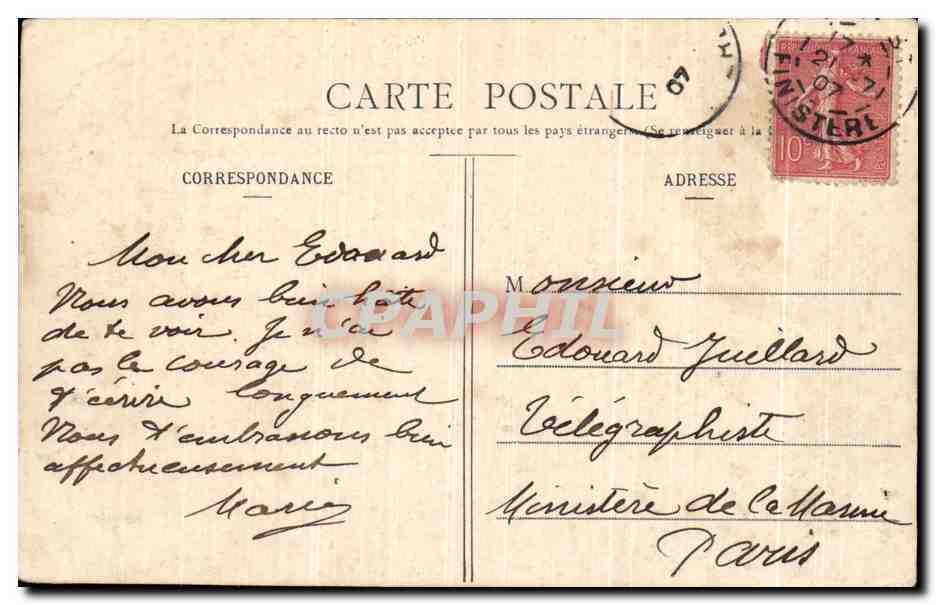 CARTE POSTALE
La Correspondance au recto n'est pas acceptée par tous les pays étrangers (Se renseigner à la
CORRESPONDANCE
ADRESSE
Mon cher Edouard
Nous avons bien hâte
de te voir. Je n'ai
pas le courage de
t'écrire longuement
Nous t'embrassons bien
affectueusement
Marie
Monsieur
Edouard Juillard
Télégraphiste
Ministère de la Marine
Paris
07
17 *
21 -7
07
FINISTERE
10
CPAPHIL